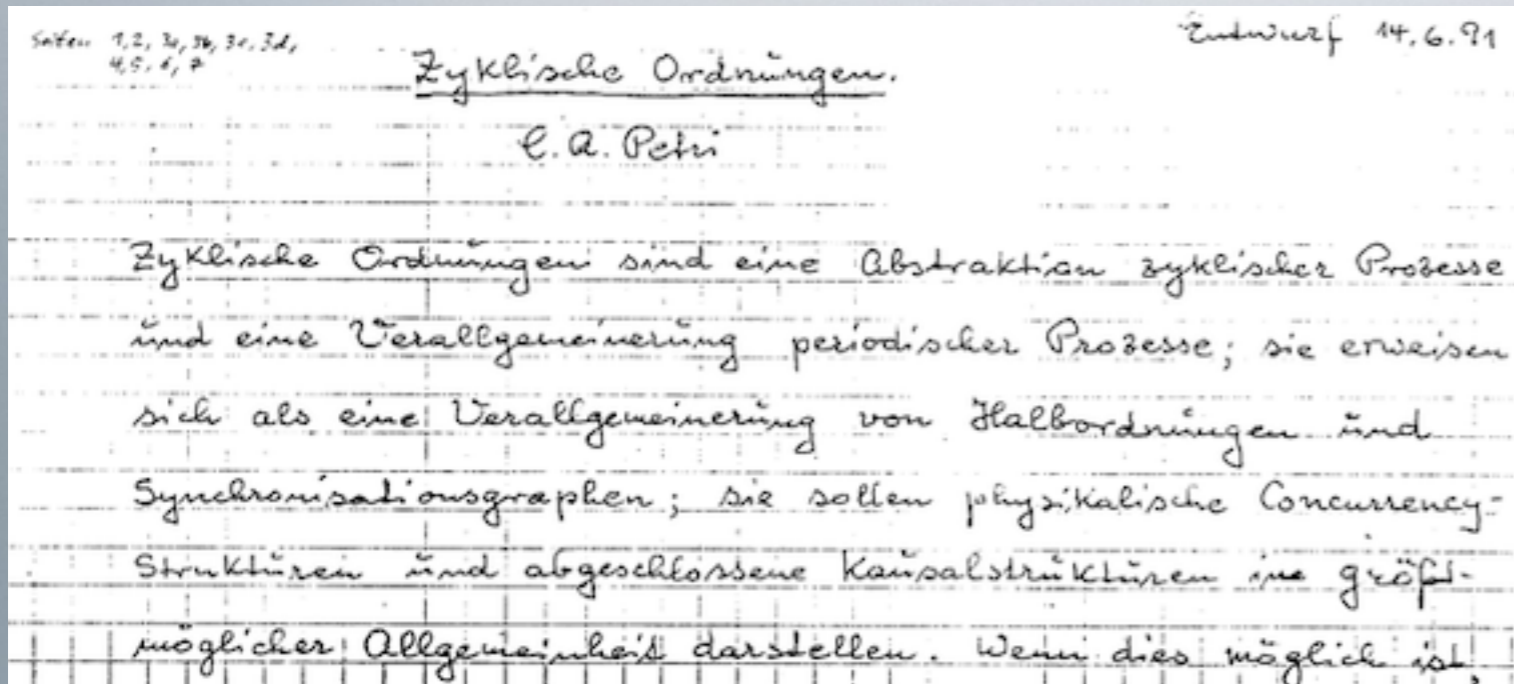 Seiten 1, 2, 3a, 3b, 3c, 3d,
4, 5, 6, 7
Entwurf 14.6.91
Zyklische Ordnungen.
C. A. Petri
Zyklische Ordnungen sind eine Abstraktion zyklischer Prozesse
und eine Verallgemeinerung periodischer Prozesse; sie erweisen
sich als eine Verallgemeinerung von Halbordnungen und
Synchronisationsgraphen; sie sollen physikalische Concurrency-
Strukturen und abgeschlossene Kausalstrukturen in größt-
möglicher Allgemeinheit darstellen. Wenn dies möglich ist,